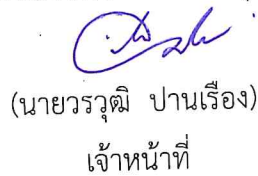 (นายวรวุฒิ ปานเรือง)
เจ้าหน้าที่